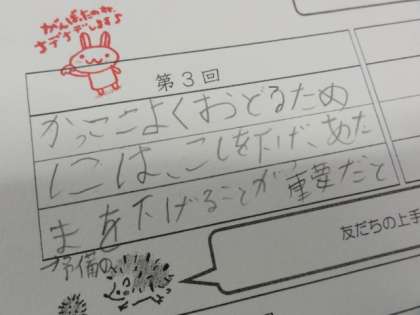 がんばったのね
第3回
かっこよくおどるため
には、こしを下げ、あた
まを下げることが重要だと
予備の
友だちの上手